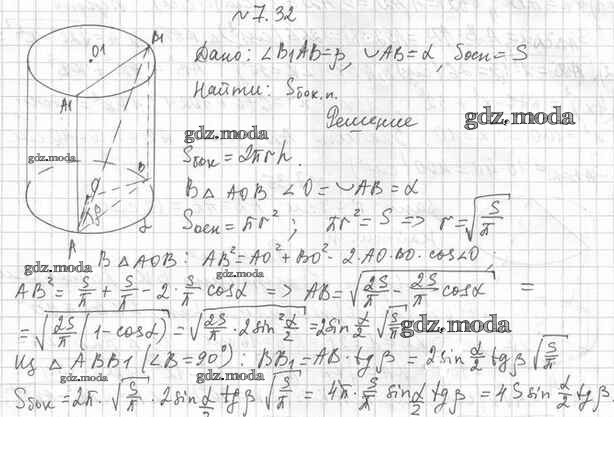 №7.32
Дано: ∠B1AB=β, ◡AB=α, Sосн=S
Найти: Sбок.п.
Решение
gdz.moda
gdz.moda
Sбок=2πrh.
В △ AOB ∠O=◡AB=α
Sосн=πr²; πr²=S => r=√(S/π)
В △AOB: AB²=AO²+BO²-2·AO·BO·cos∠O;
AB²=S/π+S/π-2·S/π cosα => AB=√(2S/π-2S/π cosα) =
=√(2S/π(1-cosα))=√(2S/π·2sin²α/2)=2sinα/2√(S/π)
Из △ ABB1(∠B=90°): BB1=AB·tgβ=2sinα/2tgβ√(S/π)
Sбок=2π·√(S/π)·2sinα/2tgβ√(S/π)=4π·S/π sinα/2tgβ=4Ssinα/2tgβ.
O1
B1
A1
gdz.moda
O
B
β
A
α
gdz.moda
gdz.moda
gdz.moda
gdz.moda
gdz.moda